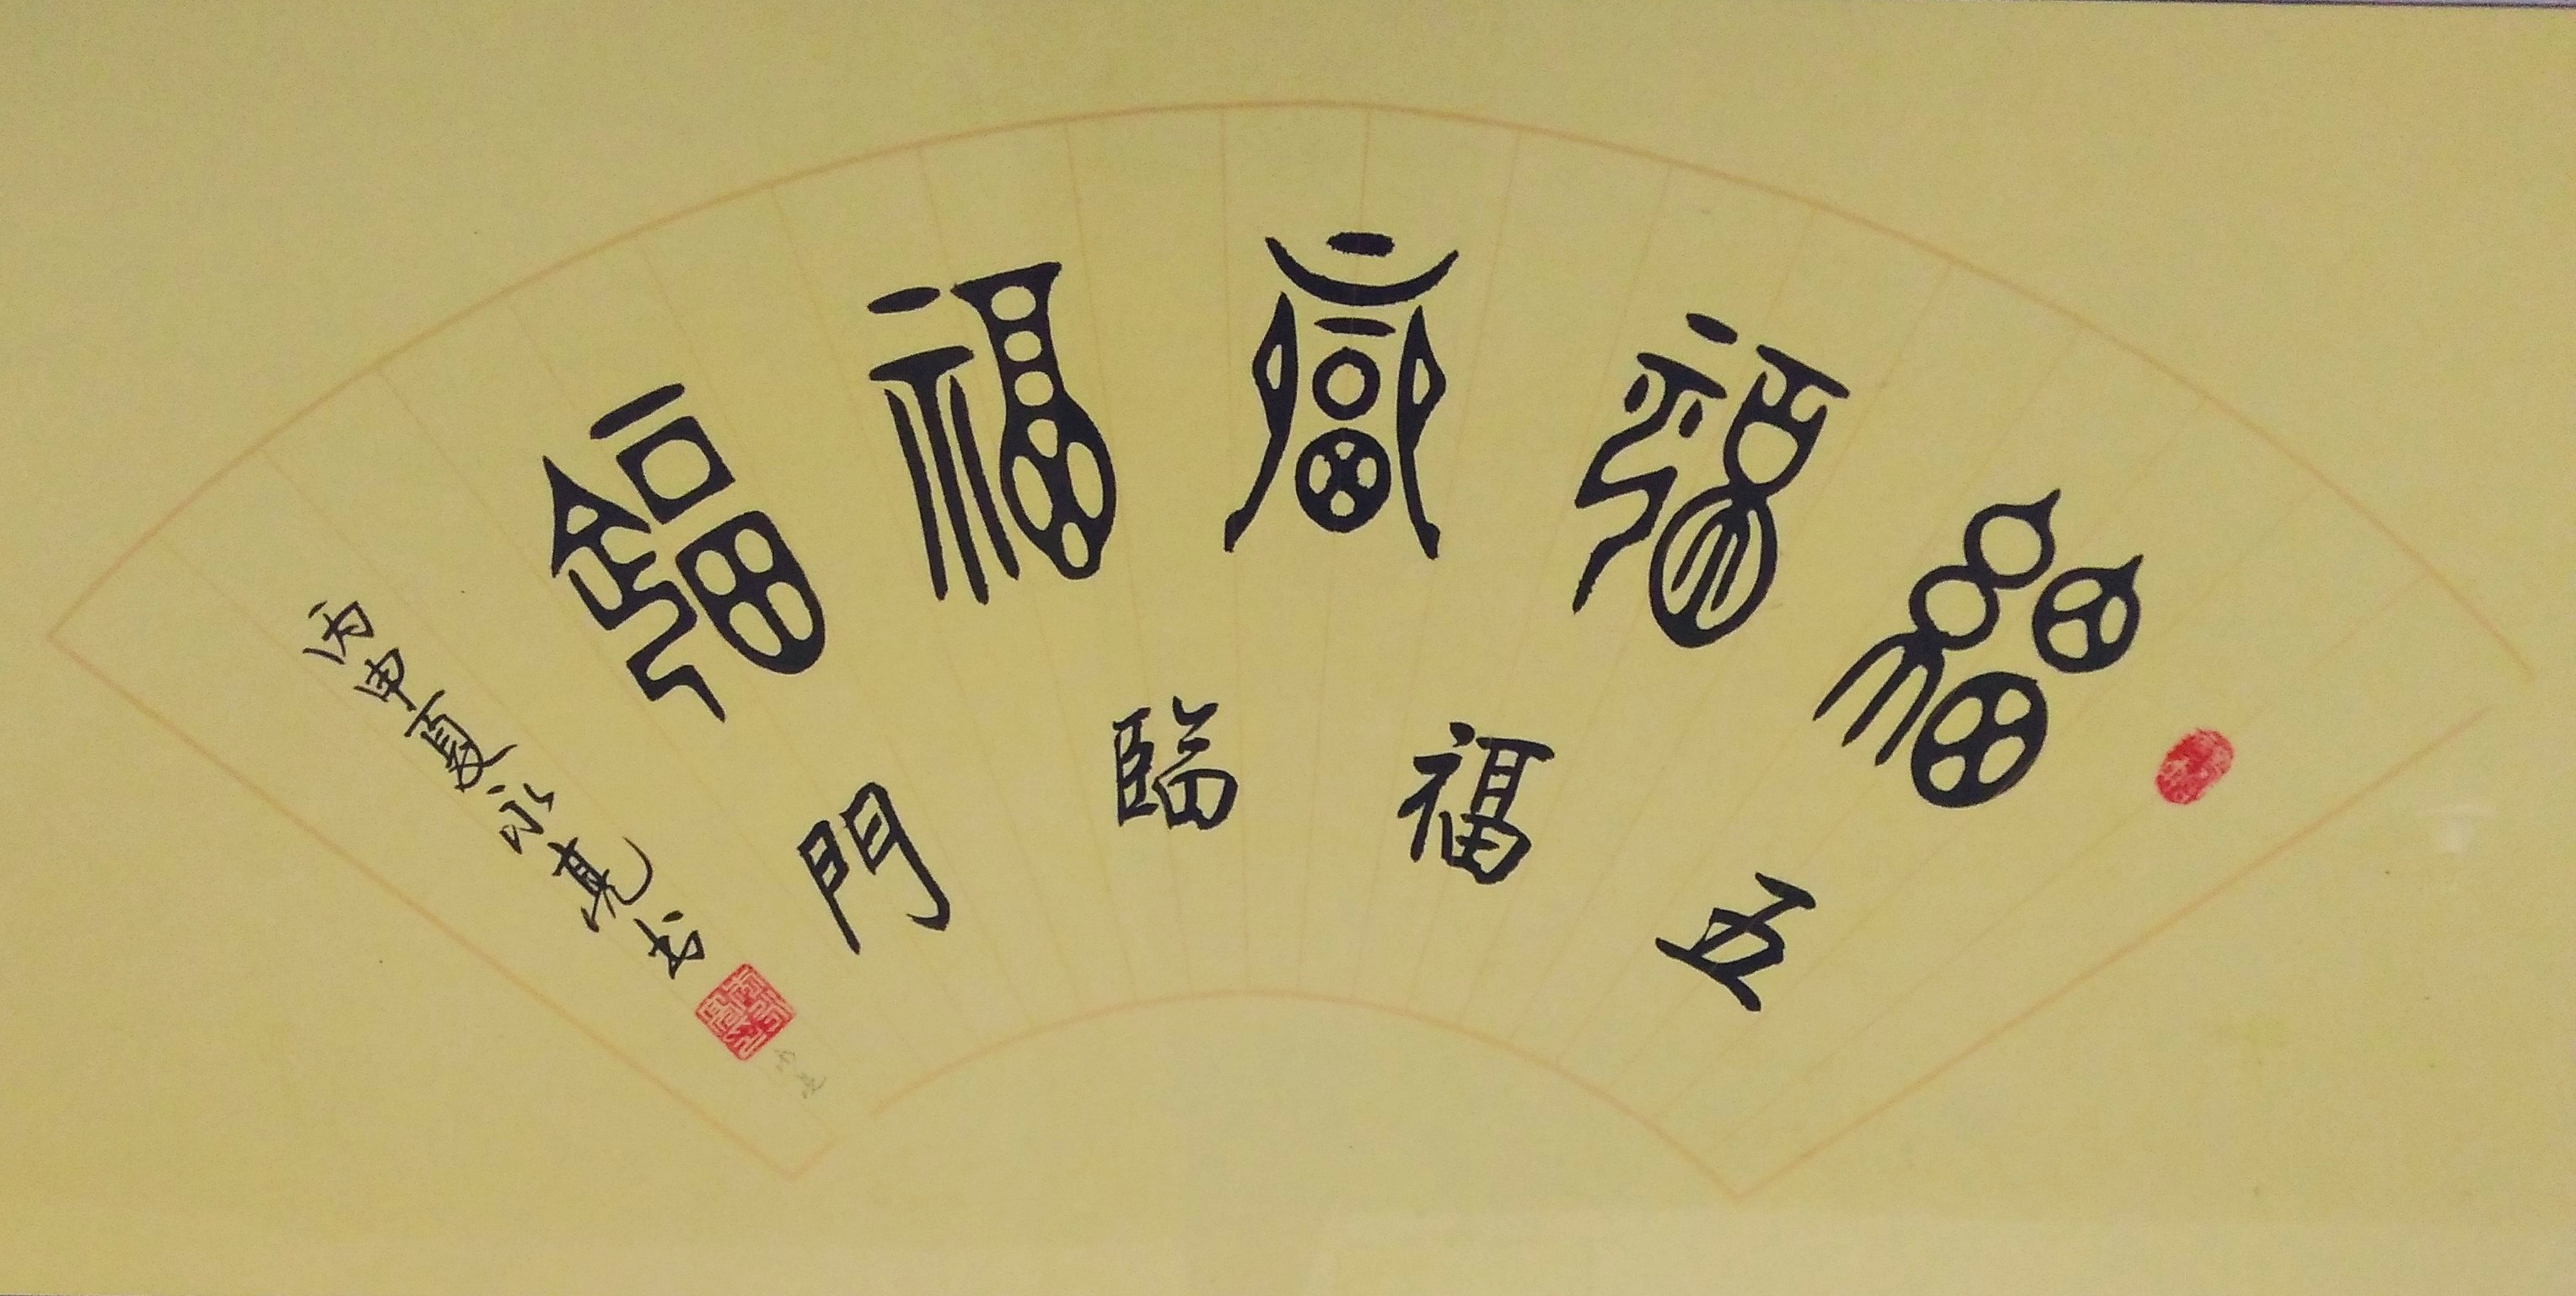 福福福福福
五福臨門
丙申夏永亮书